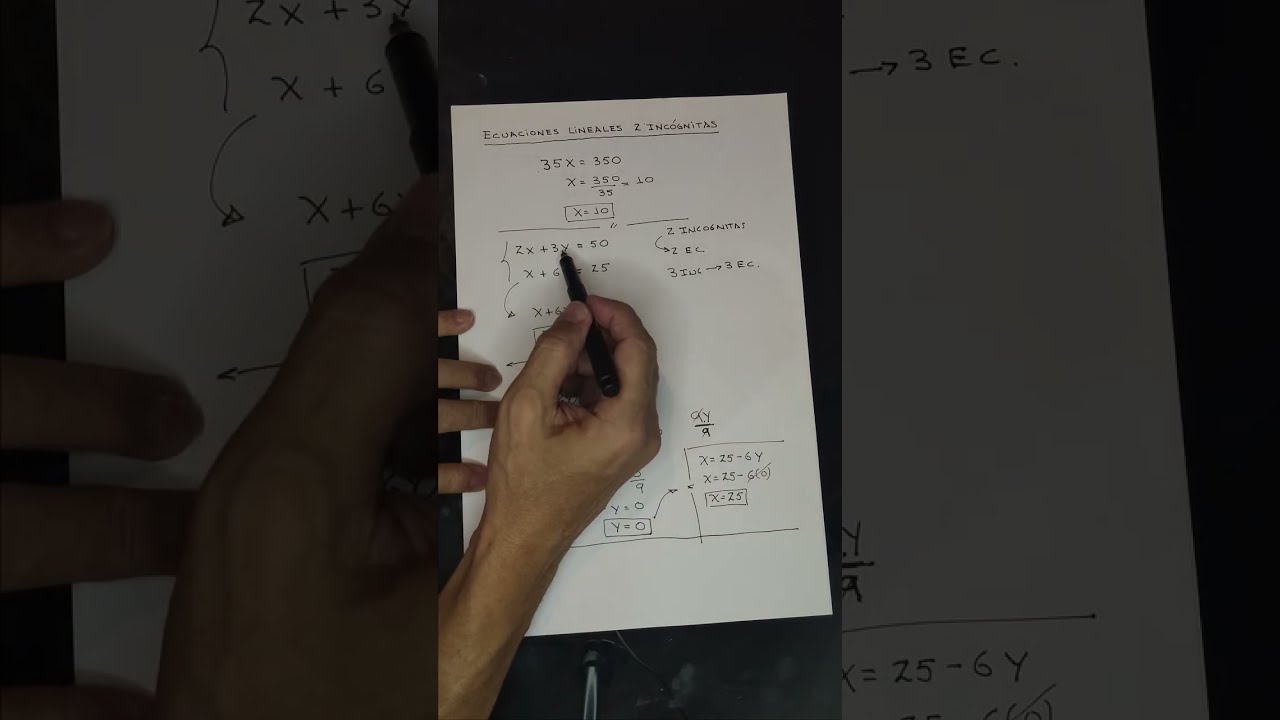 ECUACIONES LINEALES 2 INCÓGNITAS
35X = 350
X = 350/35 = 10
X = 10
2X + 3Y = 50
X + 6 = 25
2 INCOGNITAS
2 EC.
3 INC → 3 EC.
X + 6
9Y/9
9
Y = 0
Y = 0
X = 25 - 6Y
X = 25 - 6(0)
X = 25
2X + 3Y
X + 6
X + 6
→ 3 EC.
Y
9
X = 25 - 6Y
6(0)